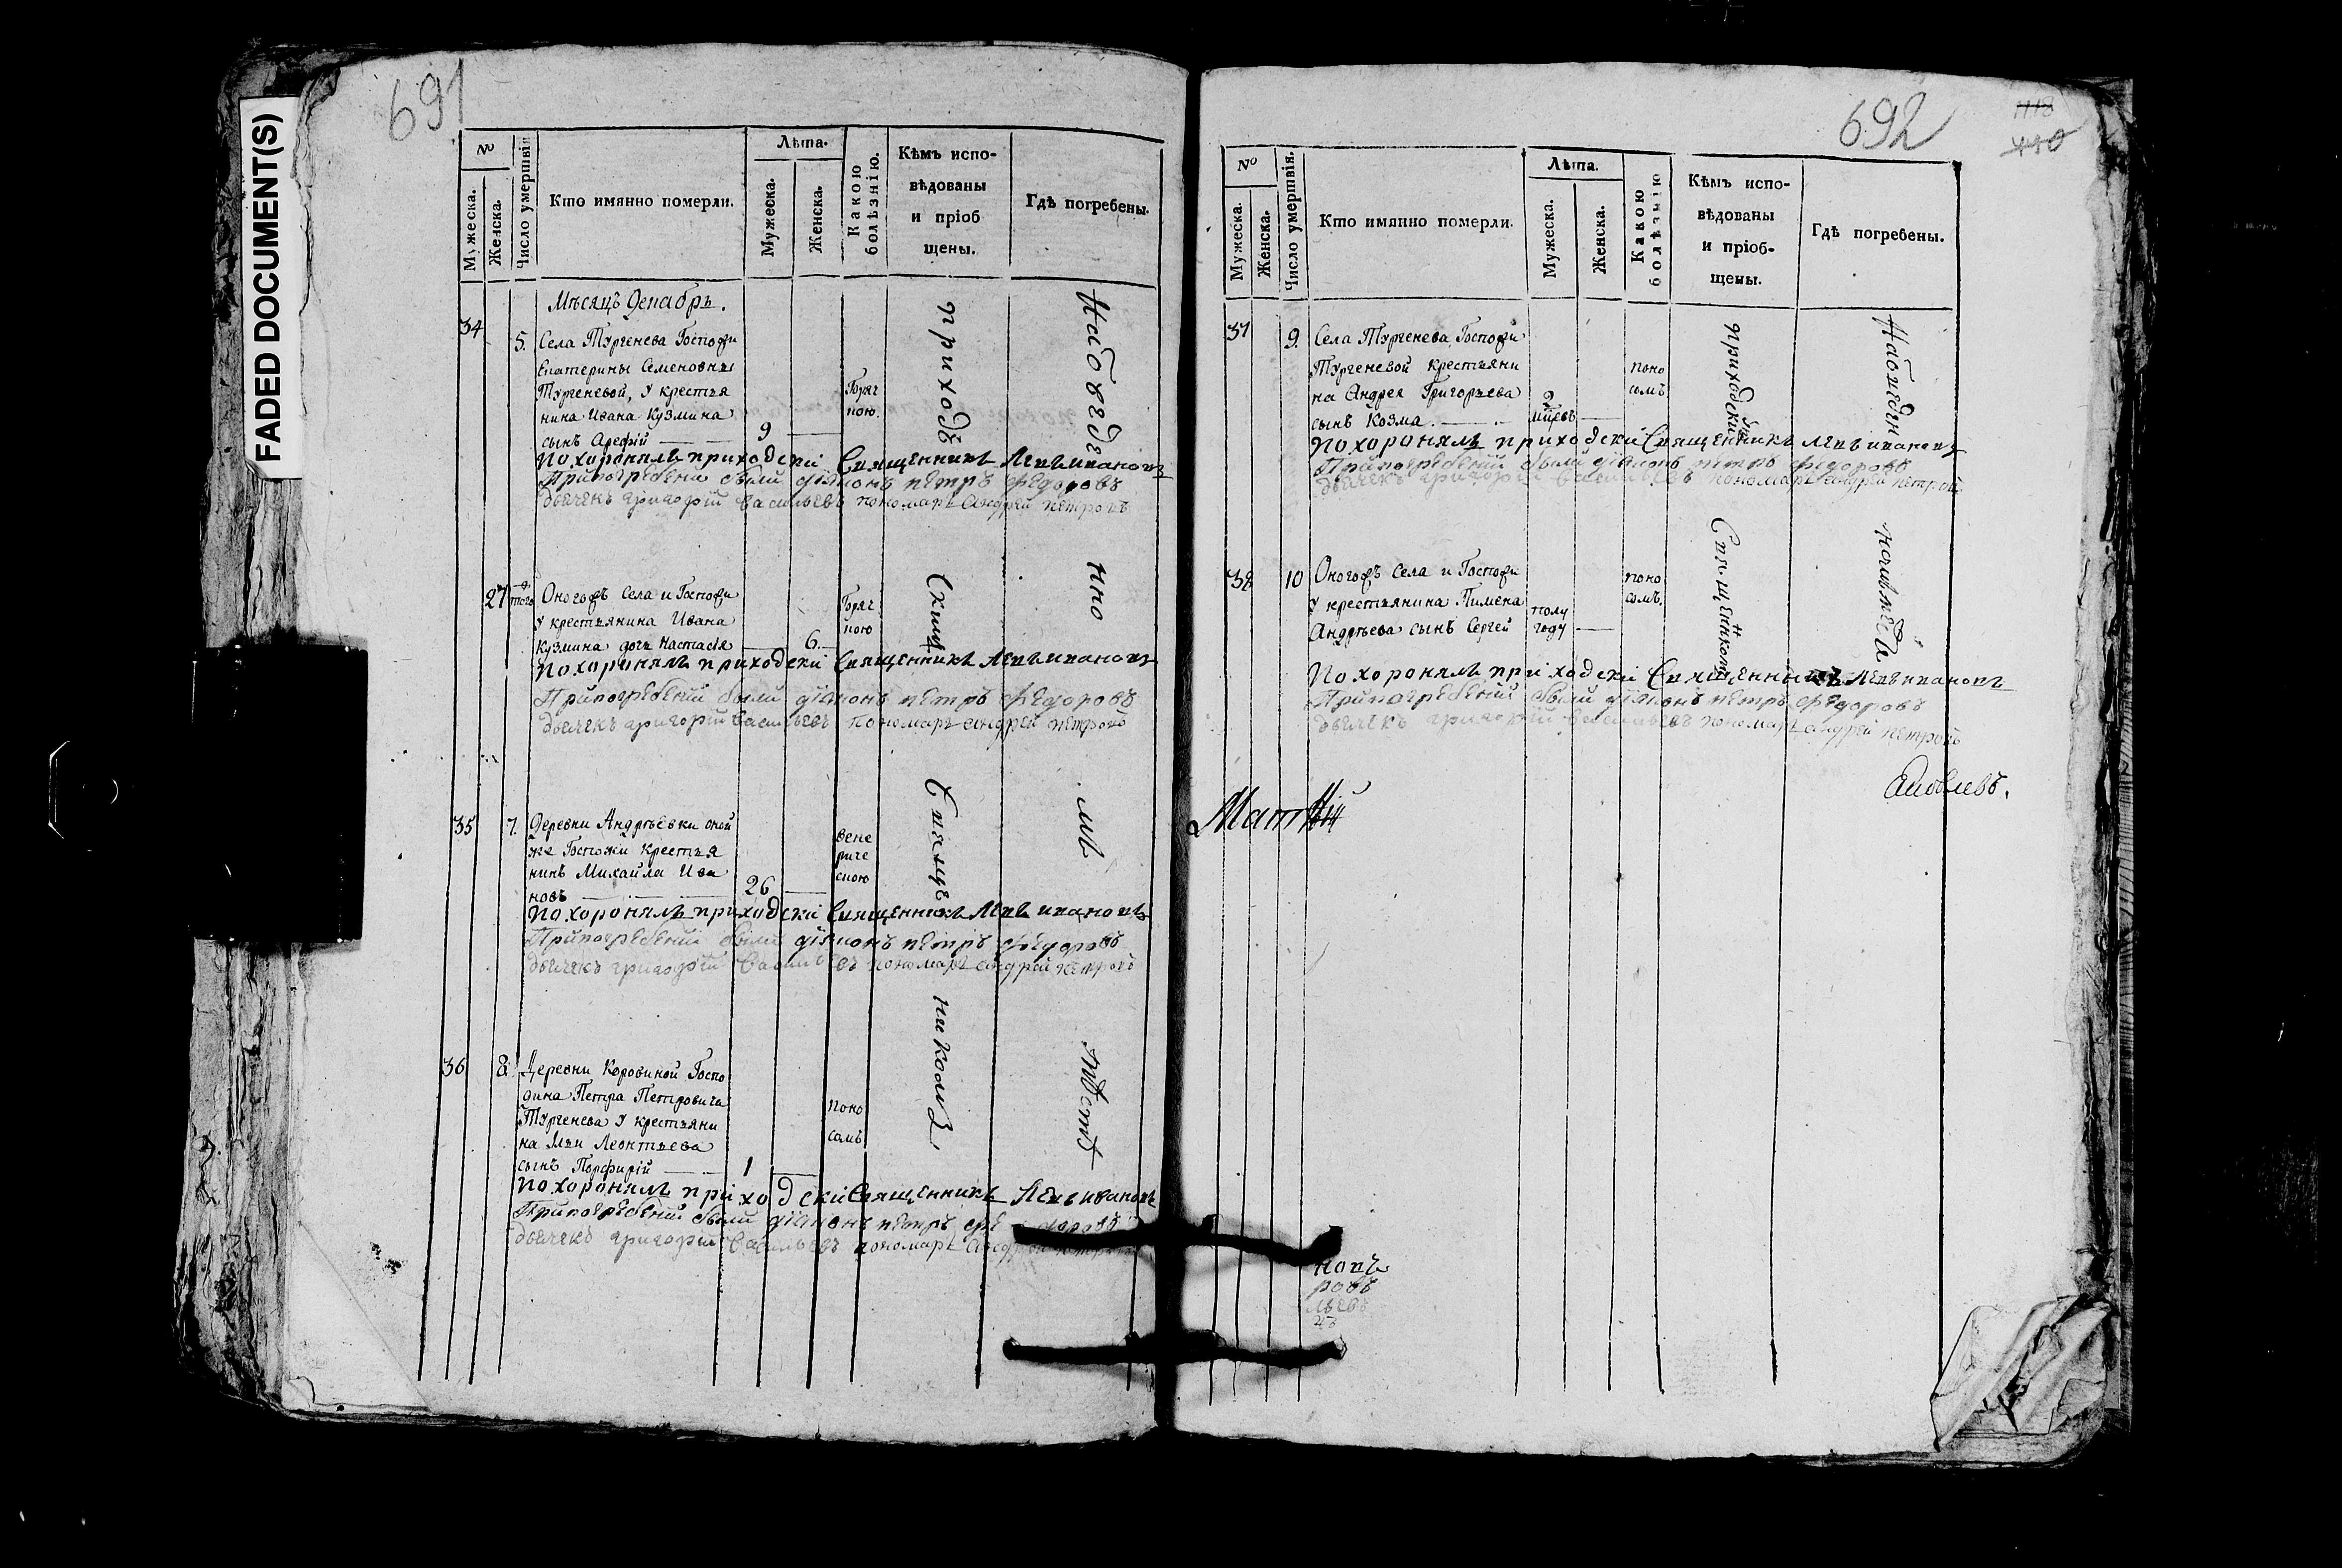 FADED DOCUMENT(S)
691
№
Мужеска.
Женска.
Число умертвія
Кто имянно померли.
Лѣта.
Мужеска.
Женска.
Какою
болѣзнію.
Кѣмъ испо-
вѣдованы
и пріоб
щены.
Гдѣ погребены.
Мѣсяцъ Декабрь.
34
5.
Села Тургенева Госпожи
Екатерины Семеновны
Тургеневой, у крестья
нина Ивана Кузмина
сынъ Арефій
9
Горяч
кою.
Похоронялъ приходскій Священникъ Левъ Ивановъ
При погребеніи были діяконъ Петръ Федоровъ
дьячекъ Григорій Васильевъ пономарь Андрей Петровъ
27
того
Оногожъ Села и Госпожи
у крестьянина Ивана
Кузмина дочь Настасія
6.
Горяч
кою
Похоронялъ приходскій Священникъ Левъ Ивановъ
При погребеніи были діяконъ Петръ Федоровъ
дьячекъ Григорій Васильевъ пономарь Андрей Петровъ
35
7.
Деревни Андрѣевки оной
же Госпожи крестья
нинъ Михайла Ива
новъ
26
вене
риче
скою
Похоронялъ приходскій Священникъ Левъ Ивановъ
При погребеніи были діяконъ Петръ Федоровъ
дьячекъ Григорій Васильевъ пономарь Андрей Петровъ
36
8.
Деревни Коровиной Госпо
дина Петра Петровича
Тургенева у крестьяни
на Леонтьева
сынъ Порфирій
1
поно
сомъ
Похоронялъ приходскій Священникъ Левъ Ивановъ
При погребеніи были діяконъ Петръ Федоровъ
дьячекъ Григорій Васильевъ пономарь Андрей Петровъ
приход
скимъ
Свящѣ
никомъ
мъ
мѣстѣ
692
№
Мужеска.
Женска.
Число умертвія.
Кто имянно померли.
Лѣта.
Мужеска.
Женска.
Какою
болѣзнію
Кѣмъ испо-
вѣдованы
и пріоб-
щены.
Гдѣ погребены.
37
9.
Села Тургенева, Госпожи
Тургеневой крестьяни
на Андрея Григорьева
сынъ Козма.
2
мцевъ
поно
сомъ
Похоронялъ приходскій Священникъ Левъ Ивановъ
При погребеніи были діяконъ Петръ Федоровъ
дьячекъ Григорій Васильевъ пономарь Андрей Петровъ
38
10
Оногожъ Села и Госпожи
у крестьянина Пимена
Андрѣева сынъ Сергей
полу
году
поно
сомъ.
Похоронялъ приходскій Священникъ Левъ Ивановъ
При погребеніи были діяконъ Петръ Федоровъ
дьячекъ Григорій Васильевъ пономарь Андрей Петровъ
приходским
Священникомъ
Яковлевъ.
новъ
ровъ
льевъ